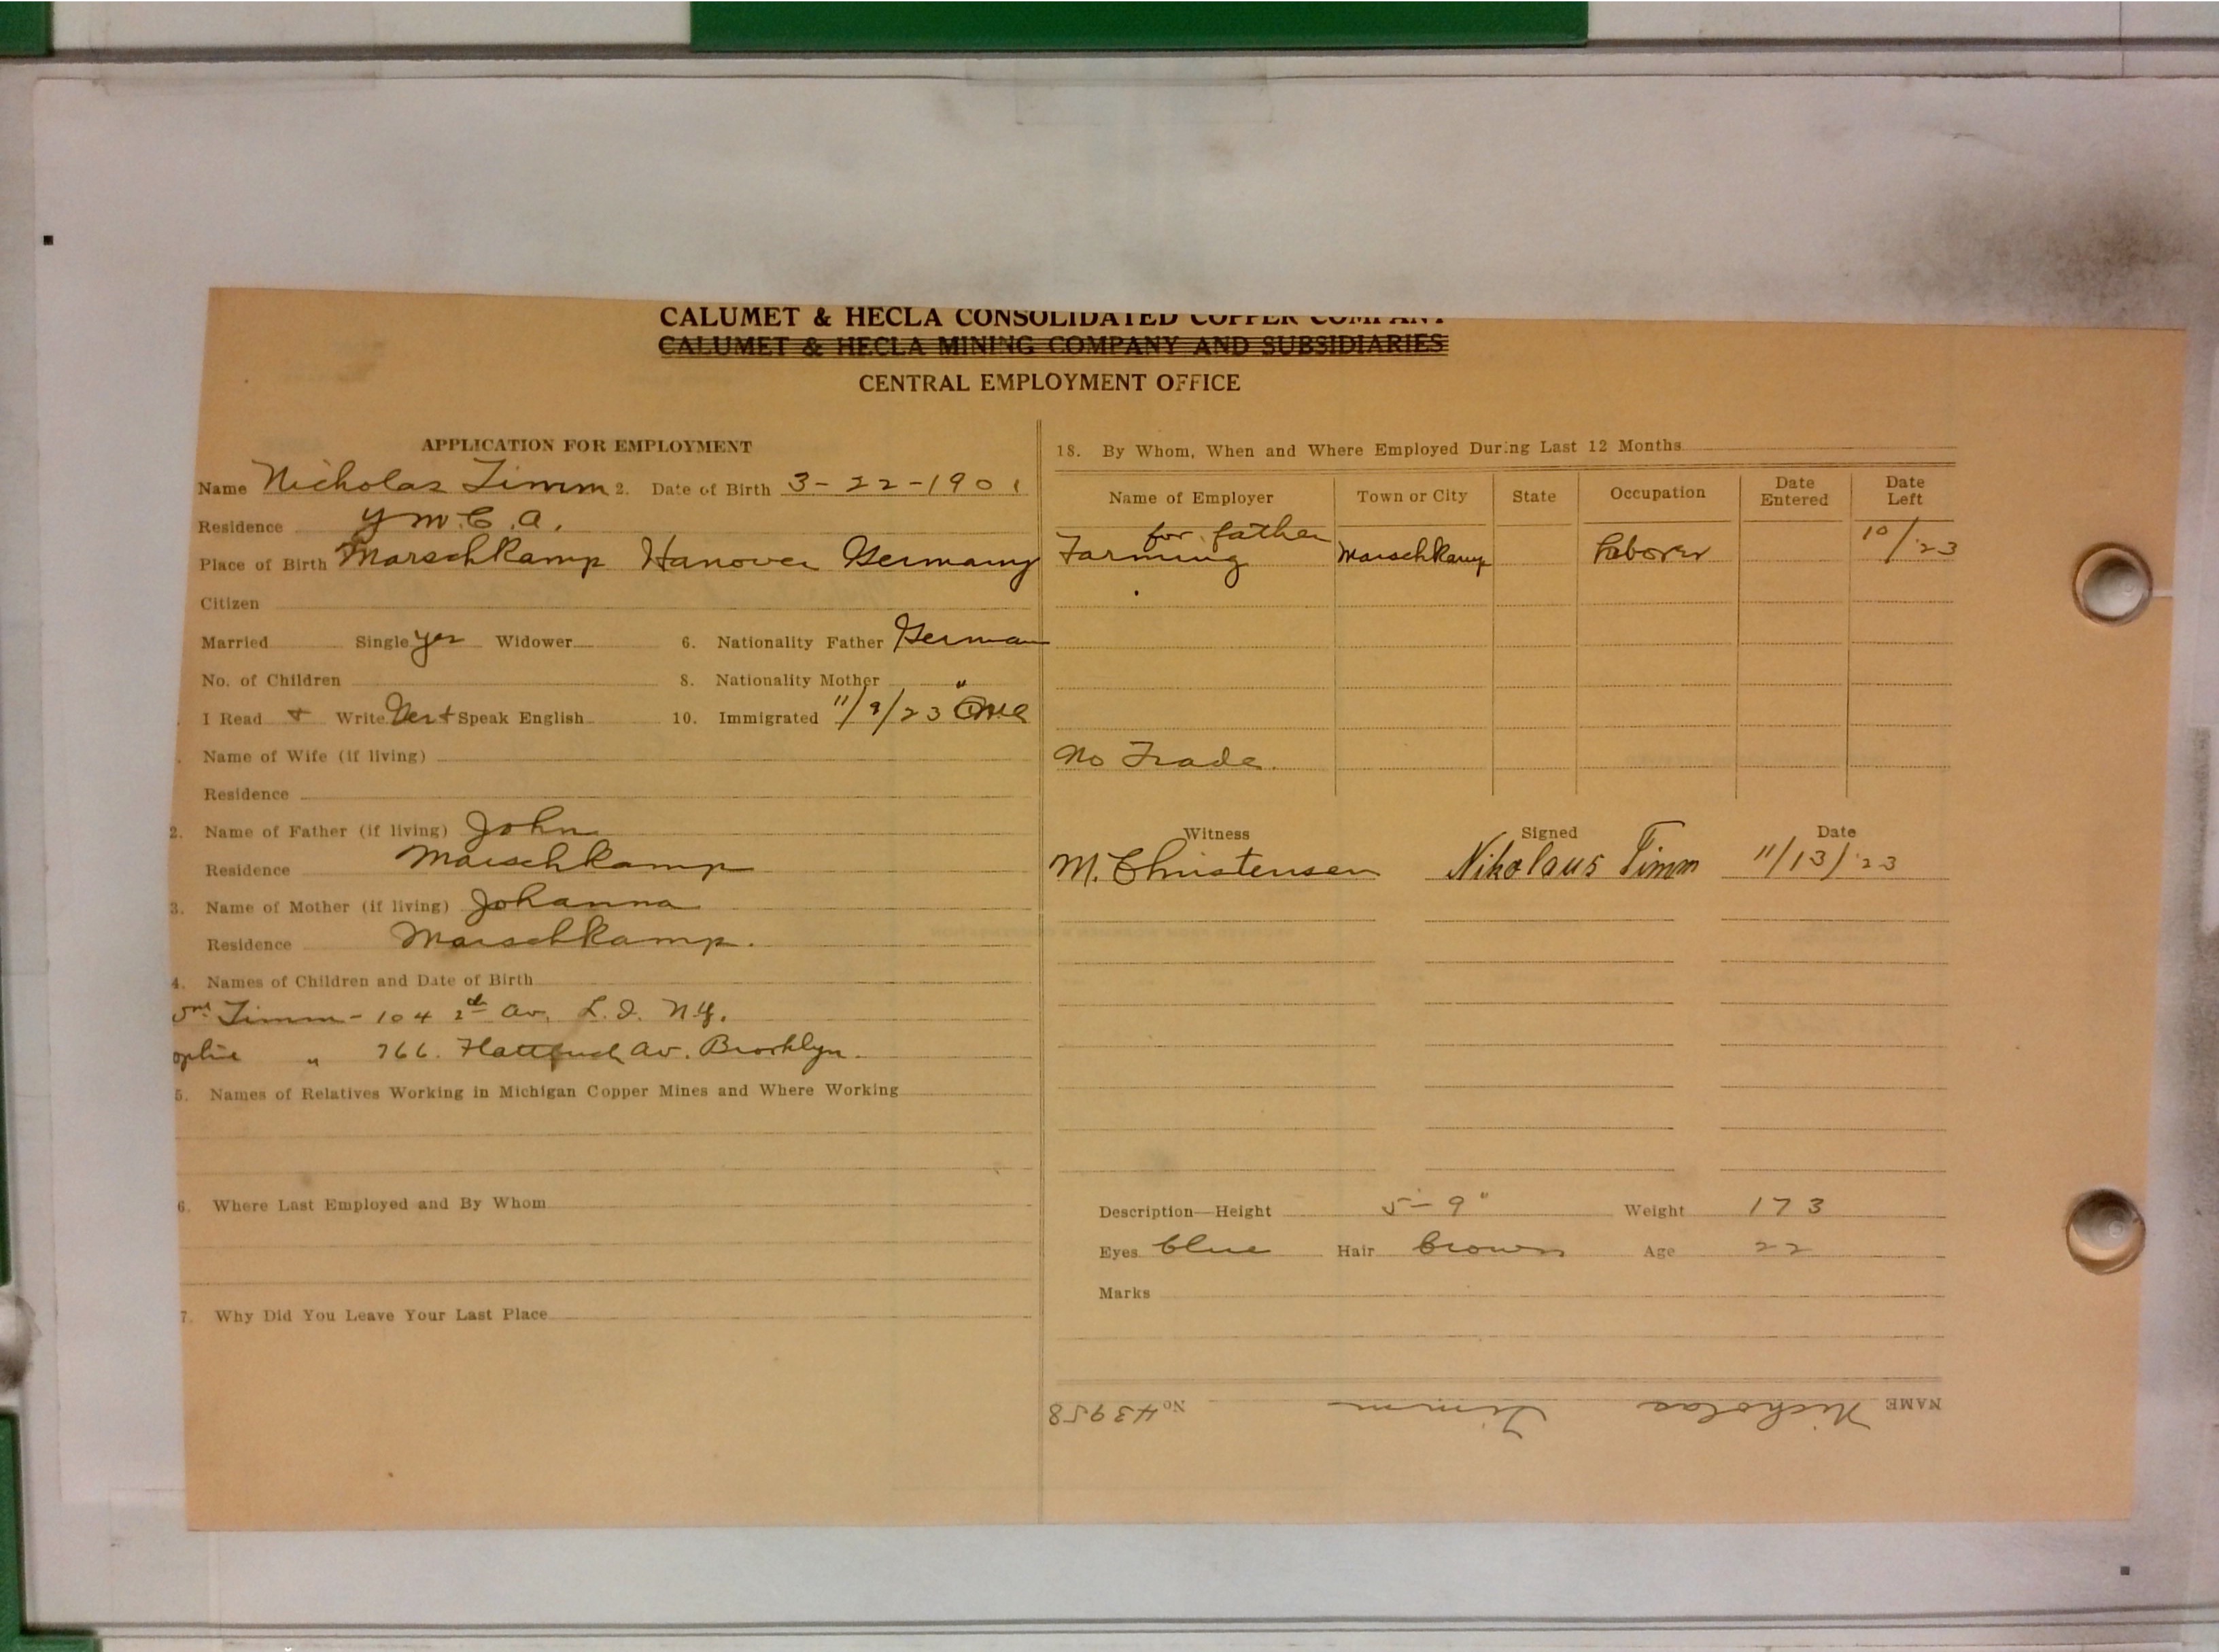 CALUMET & HECLA CONSOLIDATED COPPER COMPANY
CALUMET & HECLA MINING COMPANY AND SUBSIDIARIES
CENTRAL EMPLOYMENT OFFICE
APPLICATION FOR EMPLOYMENT
Name Nicholas Timm 2. Date of Birth 3-22-1901
Residence Y M.C.A.
Place of Birth Marschkamp Hanover Germany
Citizen
Married Single yes Widower 6. Nationality Father German
No. of Children 8. Nationality Mother "
I Read + Write Speak English 10. Immigrated 11/9/23
Name of Wife (if living)
Residence
2. Name of Father (if living) John
Residence Marschkamp
3. Name of Mother (if living) Johanna
Residence Marschkamp.
4. Names of Children and Date of Birth
Timm - 104 2d Av. L.I. N.Y.
ophie " 766. Flatbush Av. Brooklyn.
5. Names of Relatives Working in Michigan Copper Mines and Where Working
6. Where Last Employed and By Whom
7. Why Did You Leave Your Last Place
18. By Whom, When and Where Employed During Last 12 Months
Name of Employer Town or City State Occupation Date Entered Date Left
for father
Farming Marschkamp Laborer 10/'23
No Trade.
Witness Signed Date
M. Christensen Nikolaus Timm 11/13/'23
Description—Height 5-9" Weight 173
Eyes blue Hair brown Age 22
Marks
NAME Nicholas Timm No 43958